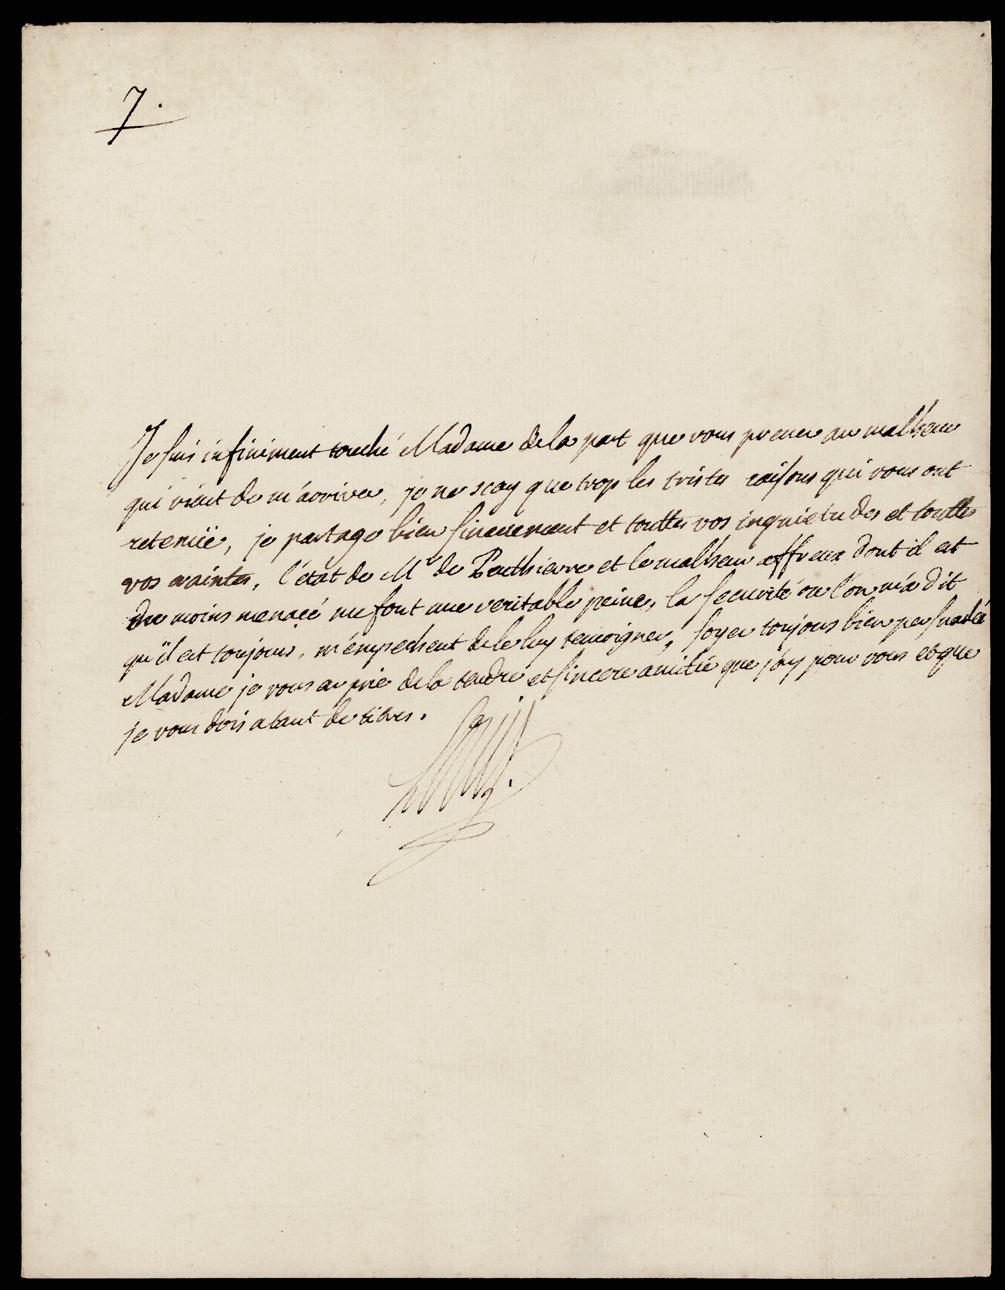 7.
Je suis infiniment touché Madame de la part que vous prenez au malheur
qui vient de m'arriver, je ne scay que trop les tristes raisons qui vous ont
retenüe, je partage bien sincerement et touttes vos inquietudes et touttes
vos craintes, l'état de Mr de Penthievre et le malheur affreux dont il est
du moins menacé me font une veritable peine, la securité ou l'on m'a dit
qu'il est toujours, m'empechent de le luy temoigner, soyez toujours bien persuadée
Madame je vous en prie de la tendre et sincere amitié que j'ay pour vous et que
je vous dois a tant de titres.